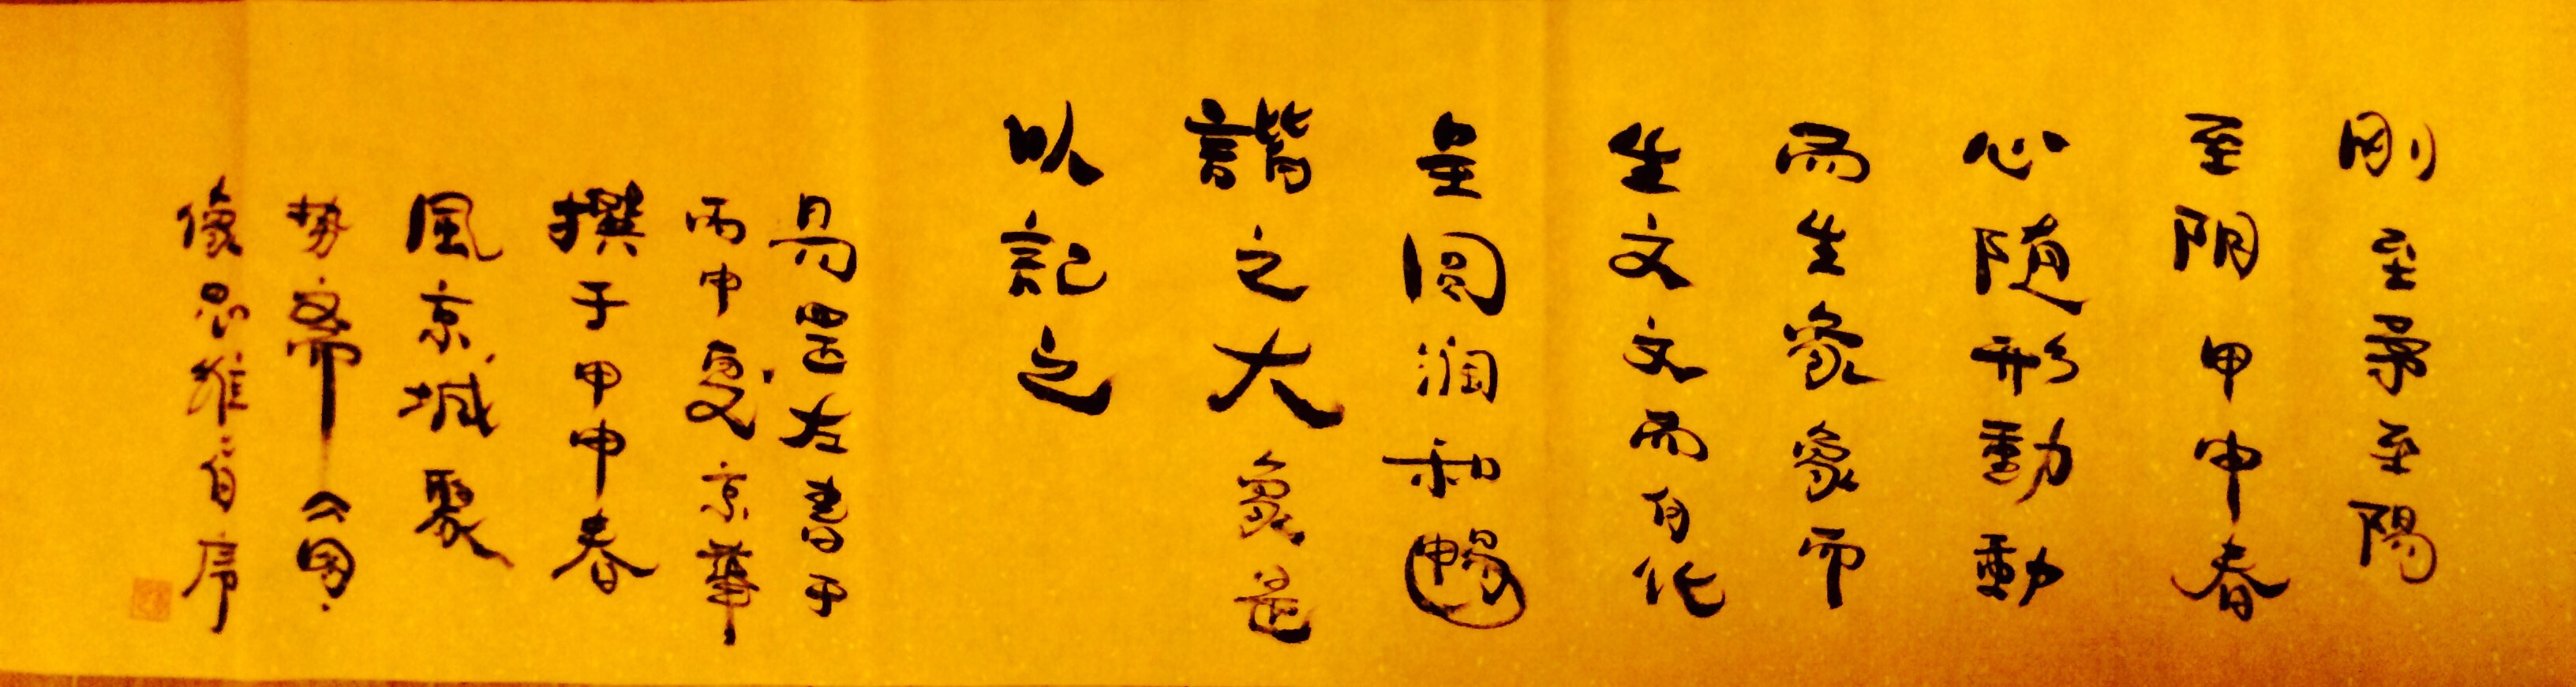 剛至柔至陽
至阴甲申春
心随形動動
而生象象而
生文文而自化
呈圆润和暢
諧之大象是
以記之
易罡左書于
丙申夏京華
撰于甲申春
風京城聚
势齋
像思維自序